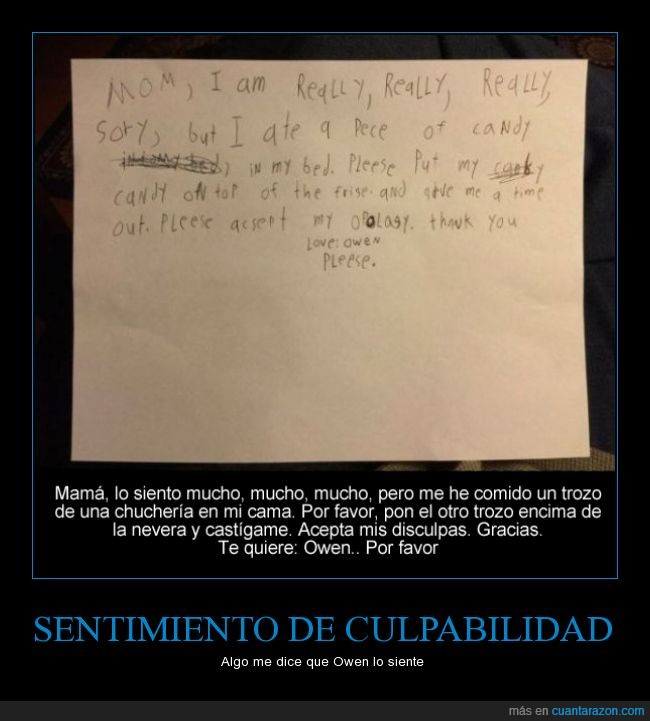 MOM, I am ReaLLY, ReaLLY, ReaLLY,
sory, but I ate a pece of caNDY
in my bed. PLeese Put my
caNdY oN top of the frise. aND give me a time
out. PLeese acsept my opology. thank you
Love: oweN
PLeese.
Mamá, lo siento mucho, mucho, mucho, pero me he comido un trozo
de una chuchería en mi cama. Por favor, pon el otro trozo encima de
la nevera y castígame. Acepta mis disculpas. Gracias.
Te quiere: Owen.. Por favor
SENTIMIENTO DE CULPABILIDAD
Algo me dice que Owen lo siente
más en cuantarazon.com